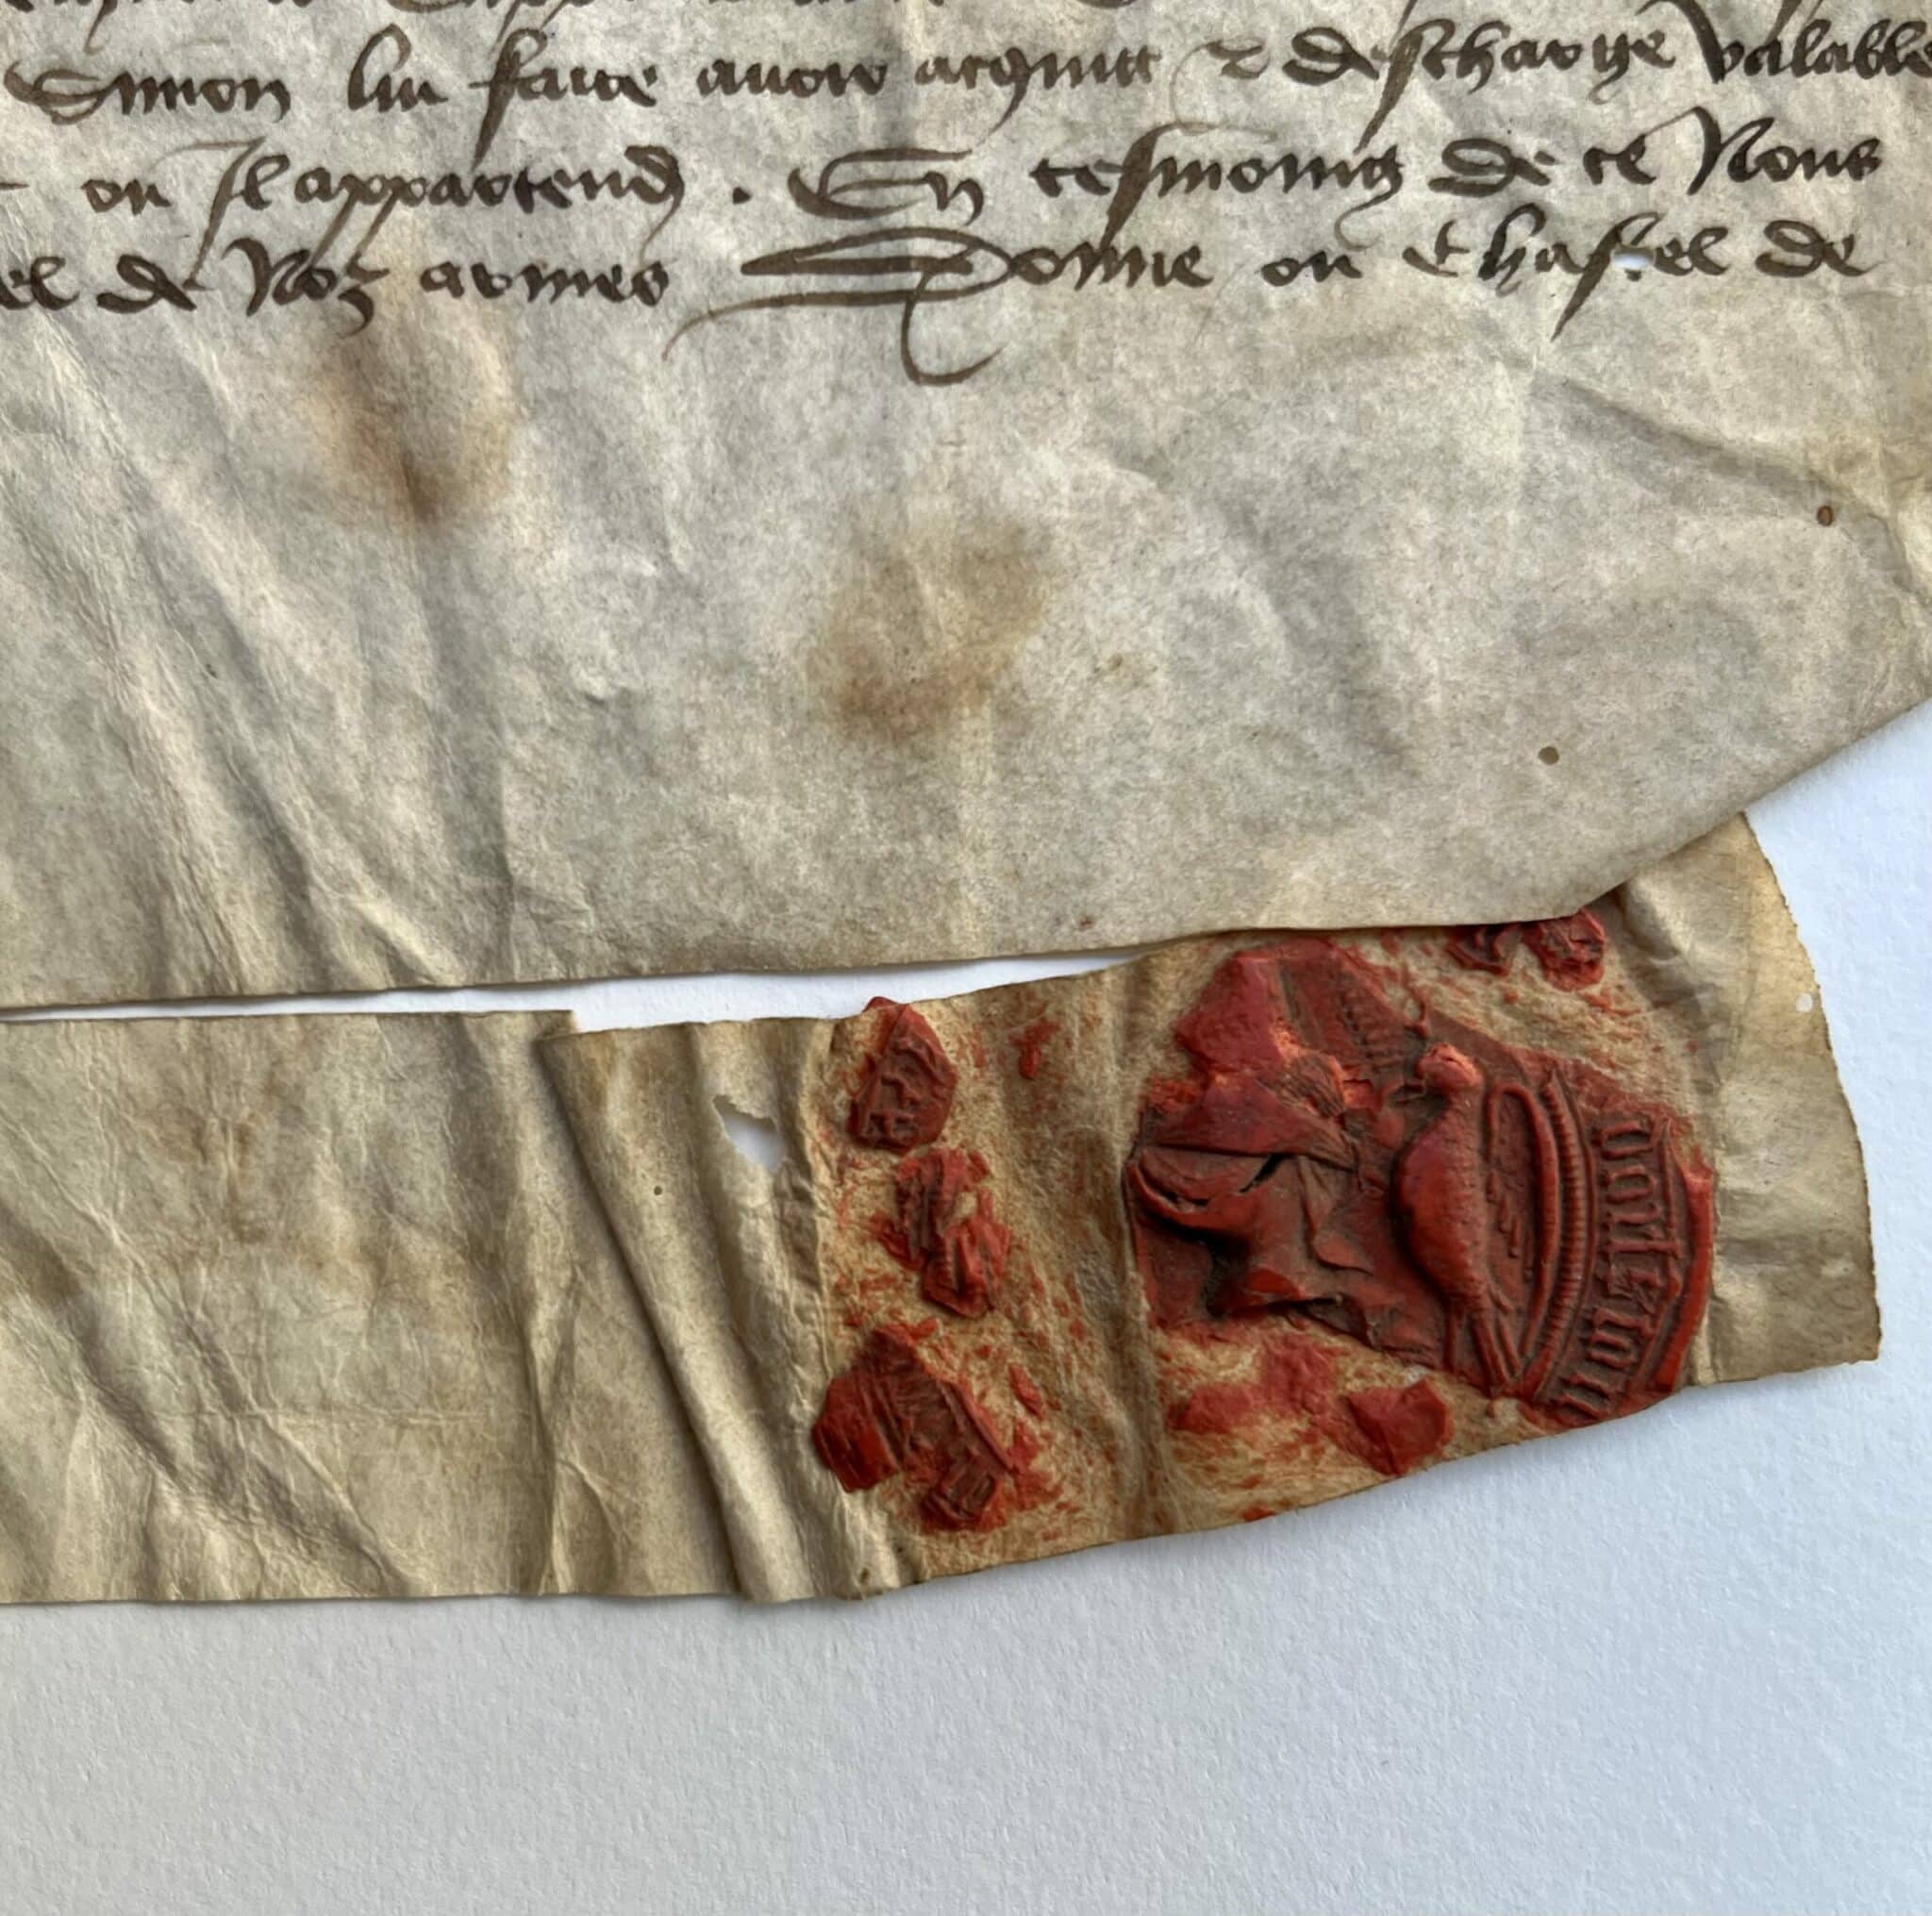 Simon lui faire avoir acquitt & descharge valable
ou Il appartendra . En tesmoing de ce Nous
el de Noz armes Donne ou Chastel de